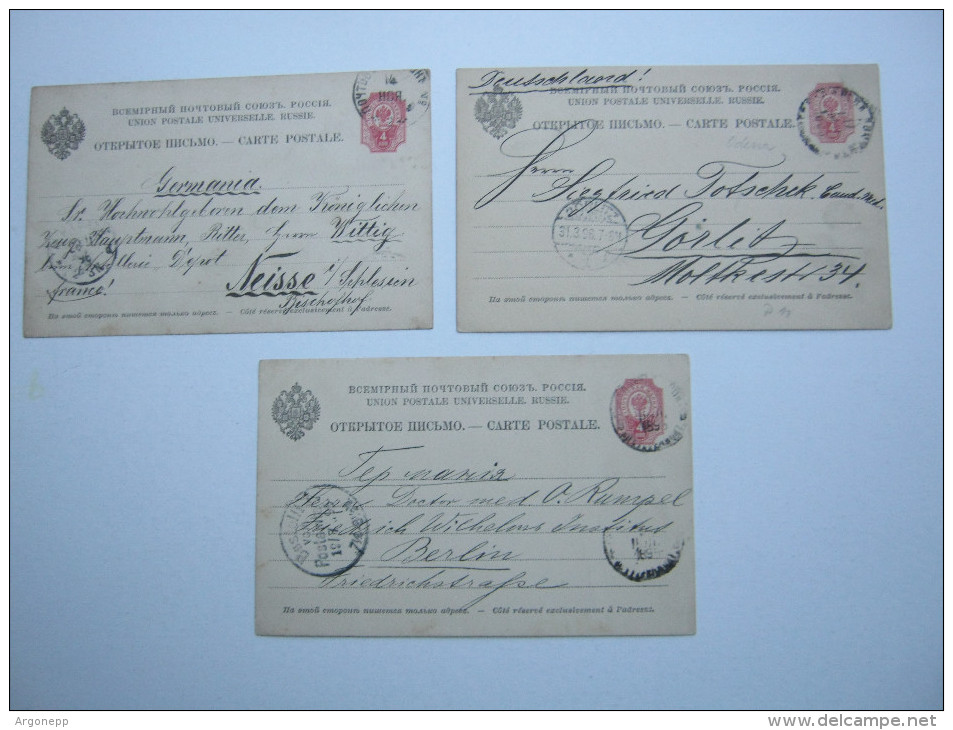 ВСЕМІРНЫЙ ПОЧТОВЫЙ СОЮЗЪ. РОССІЯ.
UNION POSTALE UNIVERSELLE. RUSSIE.
ОТКРЫТОЕ ПИСЬМО. — CARTE POSTALE.
НОЯ
4
Germania.
Sr. Hochwohlgeboren dem Königlichen
Hauptmann, Ritter, Herrn Wittig
beim Depot
franco!
Neisse i/Schlesien
Bischofhof
На этой сторонѣ пишется только адресъ. — Côté réservé exclusivement à l'adresse.
Deutschland!
ВСЕМІРНЫЙ ПОЧТОВЫЙ СОЮЗЪ. РОССІЯ.
UNION POSTALE UNIVERSELLE. RUSSIE.
ОТКРЫТОЕ ПИСЬМО. — CARTE POSTALE.
4
Herrn
Siegfried Totschek Cand. Med.
31.3.96.
Görlitz
Moltkestr. 34.
На этой сторонѣ пишется только адресъ. — Côté réservé exclusivement à l'adresse.
ВСЕМІРНЫЙ ПОЧТОВЫЙ СОЮЗЪ. РОССІЯ.
UNION POSTALE UNIVERSELLE. RUSSIE.
ОТКРЫТОЕ ПИСЬМО. — CARTE POSTALE.
4
Германія
Herrn Doctor med O. Rumpel
Friedrich Wilhelms Institut
Berlin
Friedrichstraße
На этой сторонѣ пишется только адресъ. — Côté réservé exclusivement à l'adresse.
Argonepp
www.delcampe.net